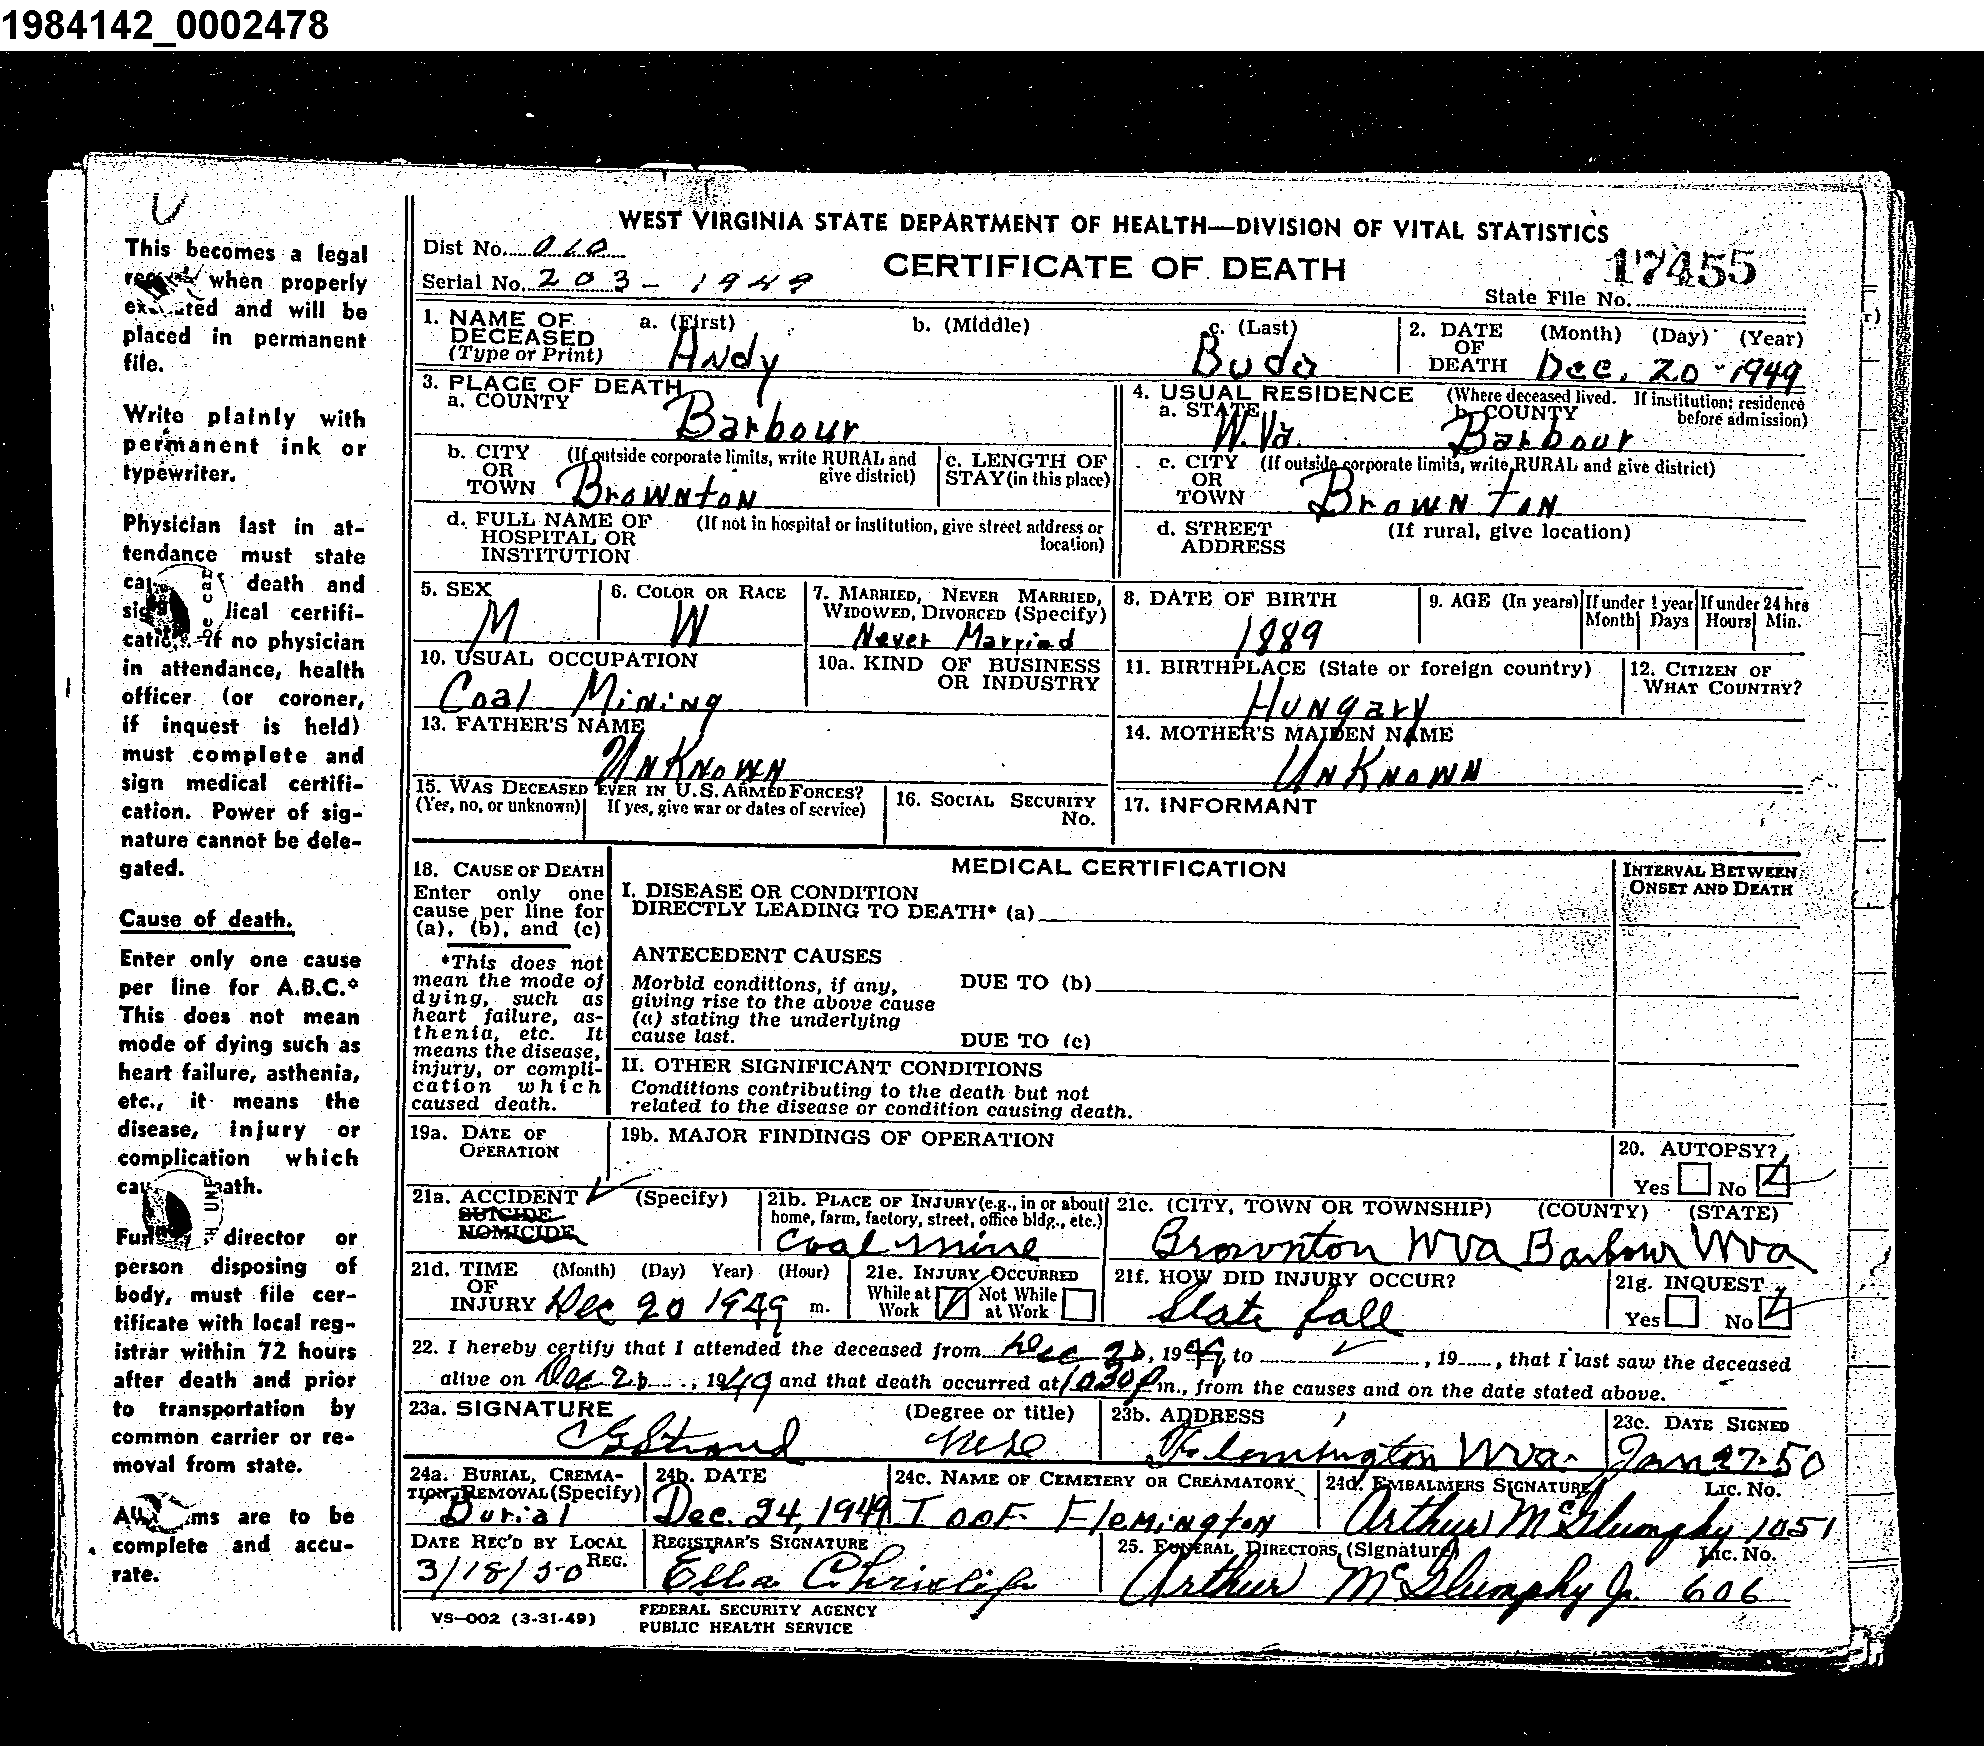 1984142_0002478
This becomes a legal
when properly
and will be
placed in permanent
file.
Write plainly with
permanent ink or
typewriter.
Physician last in at-
tendance must state
death and
lical certifi-
If no physician
in attendance, health
officer (or coroner,
if inquest is held)
must complete and
sign medical certifi-
cation. Power of sig-
nature cannot be dele-
gated.
Cause of death.
Enter only one cause
per line for A.B.C.*
This does not mean
mode of dying such as
heart failure, asthenia,
etc., it means the
disease, injury or
complication which
ath.
director or
person disposing of
body, must file cer-
tificate with local reg-
istrar within 72 hours
after death and prior
to transportation by
common carrier or re-
moval from state.
ms are to be
complete and accu-
rate.
WEST VIRGINIA STATE DEPARTMENT OF HEALTH—DIVISION OF VITAL STATISTICS
Dist No. 010
CERTIFICATE OF DEATH
17455
Serial No. 203-1949
State File No.
1. NAME OF DECEASED (Type or Print) a. (First) b. (Middle) c. (Last)
Andy Buda
2. DATE OF DEATH (Month) (Day) (Year)
Dec. 20-1949
3. PLACE OF DEATH
a. COUNTY
Barbour
4. USUAL RESIDENCE (Where deceased lived. If institution: residence before admission)
a. STATE b. COUNTY
W.Va. Barbour
b. CITY OR TOWN (If outside corporate limits, write RURAL and give district)
Brownton
c. LENGTH OF STAY (in this place)
c. CITY OR TOWN (If outside corporate limits, write RURAL and give district)
Brownton
d. FULL NAME OF HOSPITAL OR INSTITUTION (If not in hospital or institution, give street address or location)
d. STREET ADDRESS (If rural, give location)
5. SEX
M
6. COLOR OR RACE
W
7. MARRIED, NEVER MARRIED, WIDOWED, DIVORCED (Specify)
Never Married
8. DATE OF BIRTH
1889
9. AGE (In years) If under 1 year Month Days If under 24 hrs Hours Min.
10. USUAL OCCUPATION
Coal Mining
10a. KIND OF BUSINESS OR INDUSTRY
11. BIRTHPLACE (State or foreign country)
Hungary
12. CITIZEN OF WHAT COUNTRY?
13. FATHER'S NAME
Unknown
14. MOTHER'S MAIDEN NAME
Unknown
15. WAS DECEASED EVER IN U.S. ARMED FORCES?
(Yes, no, or unknown) If yes, give war or dates of service)
16. SOCIAL SECURITY No.
17. INFORMANT
18. CAUSE OF DEATH
Enter only one
cause per line for
(a), (b), and (c)
*This does not
mean the mode of
dying, such as
heart failure, as-
thenia, etc. It
means the disease,
injury, or compli-
cation which
caused death.
MEDICAL CERTIFICATION
INTERVAL BETWEEN ONSET AND DEATH
I. DISEASE OR CONDITION
DIRECTLY LEADING TO DEATH* (a)
ANTECEDENT CAUSES
Morbid conditions, if any, DUE TO (b)
giving rise to the above cause
(a) stating the underlying
cause last. DUE TO (c)
II. OTHER SIGNIFICANT CONDITIONS
Conditions contributing to the death but not
related to the disease or condition causing death.
19a. DATE OF OPERATION
19b. MAJOR FINDINGS OF OPERATION
20. AUTOPSY?
Yes No
21a. ACCIDENT (Specify)
SUICIDE
HOMICIDE
21b. PLACE OF INJURY (e.g., in or about home, farm, factory, street, office bldg., etc.)
Coal mine
21c. (CITY, TOWN OR TOWNSHIP) (COUNTY) (STATE)
Brownton WVa Barbour WVa
21d. TIME OF INJURY (Month) (Day) Year) (Hour)
Dec 20 1949 m.
21e. INJURY OCCURRED
While at Work Not While at Work
21f. HOW DID INJURY OCCUR?
Slate fall
21g. INQUEST
Yes No
22. I hereby certify that I attended the deceased from Dec 20, 1949, to , 19 , that I last saw the deceased
alive on Dec 20, 1949 and that death occurred at 1030 P m., from the causes and on the date stated above.
23a. SIGNATURE (Degree or title)
23b. ADDRESS
Flemington WVa.
23c. DATE SIGNED
Jan 27-50
24a. BURIAL, CREMA-
TION, REMOVAL (Specify)
Burial
24b. DATE
Dec. 24, 1949
24c. NAME OF CEMETERY OR CREAMATORY
IOOF Flemington
24d. EMBALMERS SIGNATURE Lic. No.
Arthur McGlumphy 1051
DATE REC'D BY LOCAL REG.
3/18/50
REGISTRAR'S SIGNATURE
Ella
25. FUNERAL DIRECTORS (Signature) Lic. No.
Arthur McGlumphy Jr. 606
VS-002 (3-31-49)
FEDERAL SECURITY AGENCY
PUBLIC HEALTH SERVICE